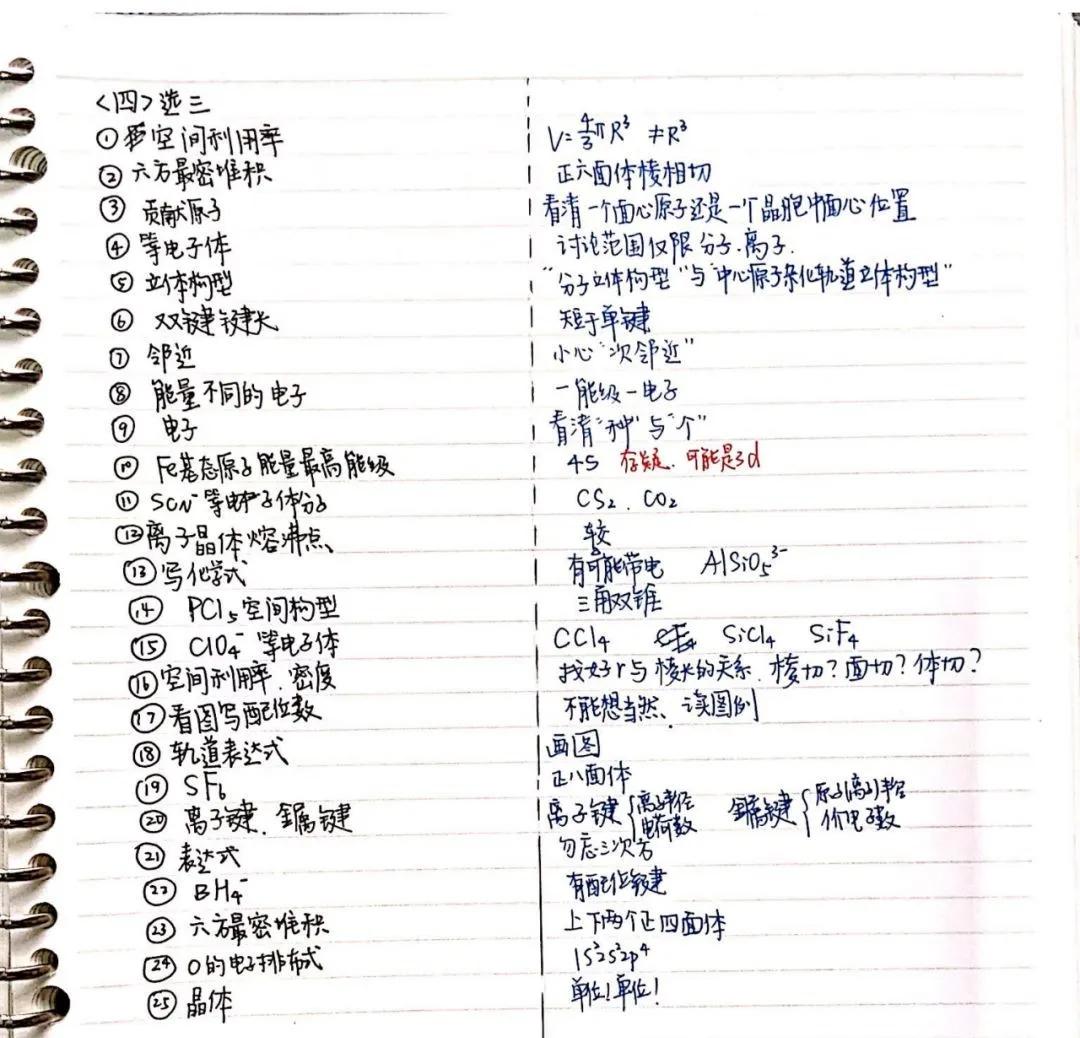 <四>选三
①空间利用率 V=4/3πR³ ≠R³
②六方最密堆积 正六面体棱相切
③贡献原子 看清一个面心原子还是一个晶胞中面心位置
④等电子体 讨论范围仅限分子、离子.
⑤立体构型 "分子立体构型"与"中心原子杂化轨道立体构型"
⑥双键键长 短于单键
⑦邻近 小心"次邻近"
⑧能量不同的电子 一能级一电子
⑨电子 看清"种"与"个"
⑩Fe基态原子能量最高能级 4s 存疑.可能是3d
⑪SCN⁻等电子体分子 CS₂、CO₂
⑫离子晶体熔沸点 较
⑬写化学式 有可能带电 AlSiO₅³⁻
⑭PCl₅空间构型 三角双锥
⑮ClO₄⁻等电子体 CCl₄ SiCl₄ SiF₄
⑯空间利用率.密度 找好r与棱长的关系.棱切?面切?体切?
⑰看图写配位数 不能想当然、读图例
⑱轨道表达式 画图
⑲SF₆ 正八面体
⑳离子键.金属键 离子键{离子半径 电荷数 金属键{原子(离子)半径 价电子数
㉑表达式 勿忘三次方
㉒BH₄⁻ 有配位键
㉓六方最密堆积 上下两个正四面体
㉔O的电子排布式 1s²2s²2p⁴
㉕晶体 单位!单位!